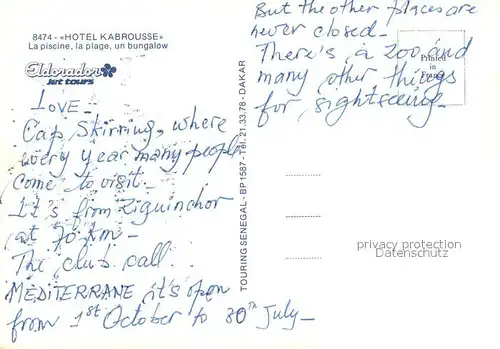 8474 - «HOTEL KABROUSSE»
La piscine, la plage, un bungalow
Eldorador
jet tours
LOVE -
Cap, Skirring, where
every year many people
come to visit -
It's from Ziguinchor
at 70 km -
The club call..
MEDITERRANE, it's open
from 1st October to 30th July -
TOURING SENEGAL - BP 1587 - Tél. 21.33.78 - DAKAR
But the other places are
never closed -
There's, a zoo and
many other things
for, sightseeing -
Printed
in
privacy protection
Datenschutz